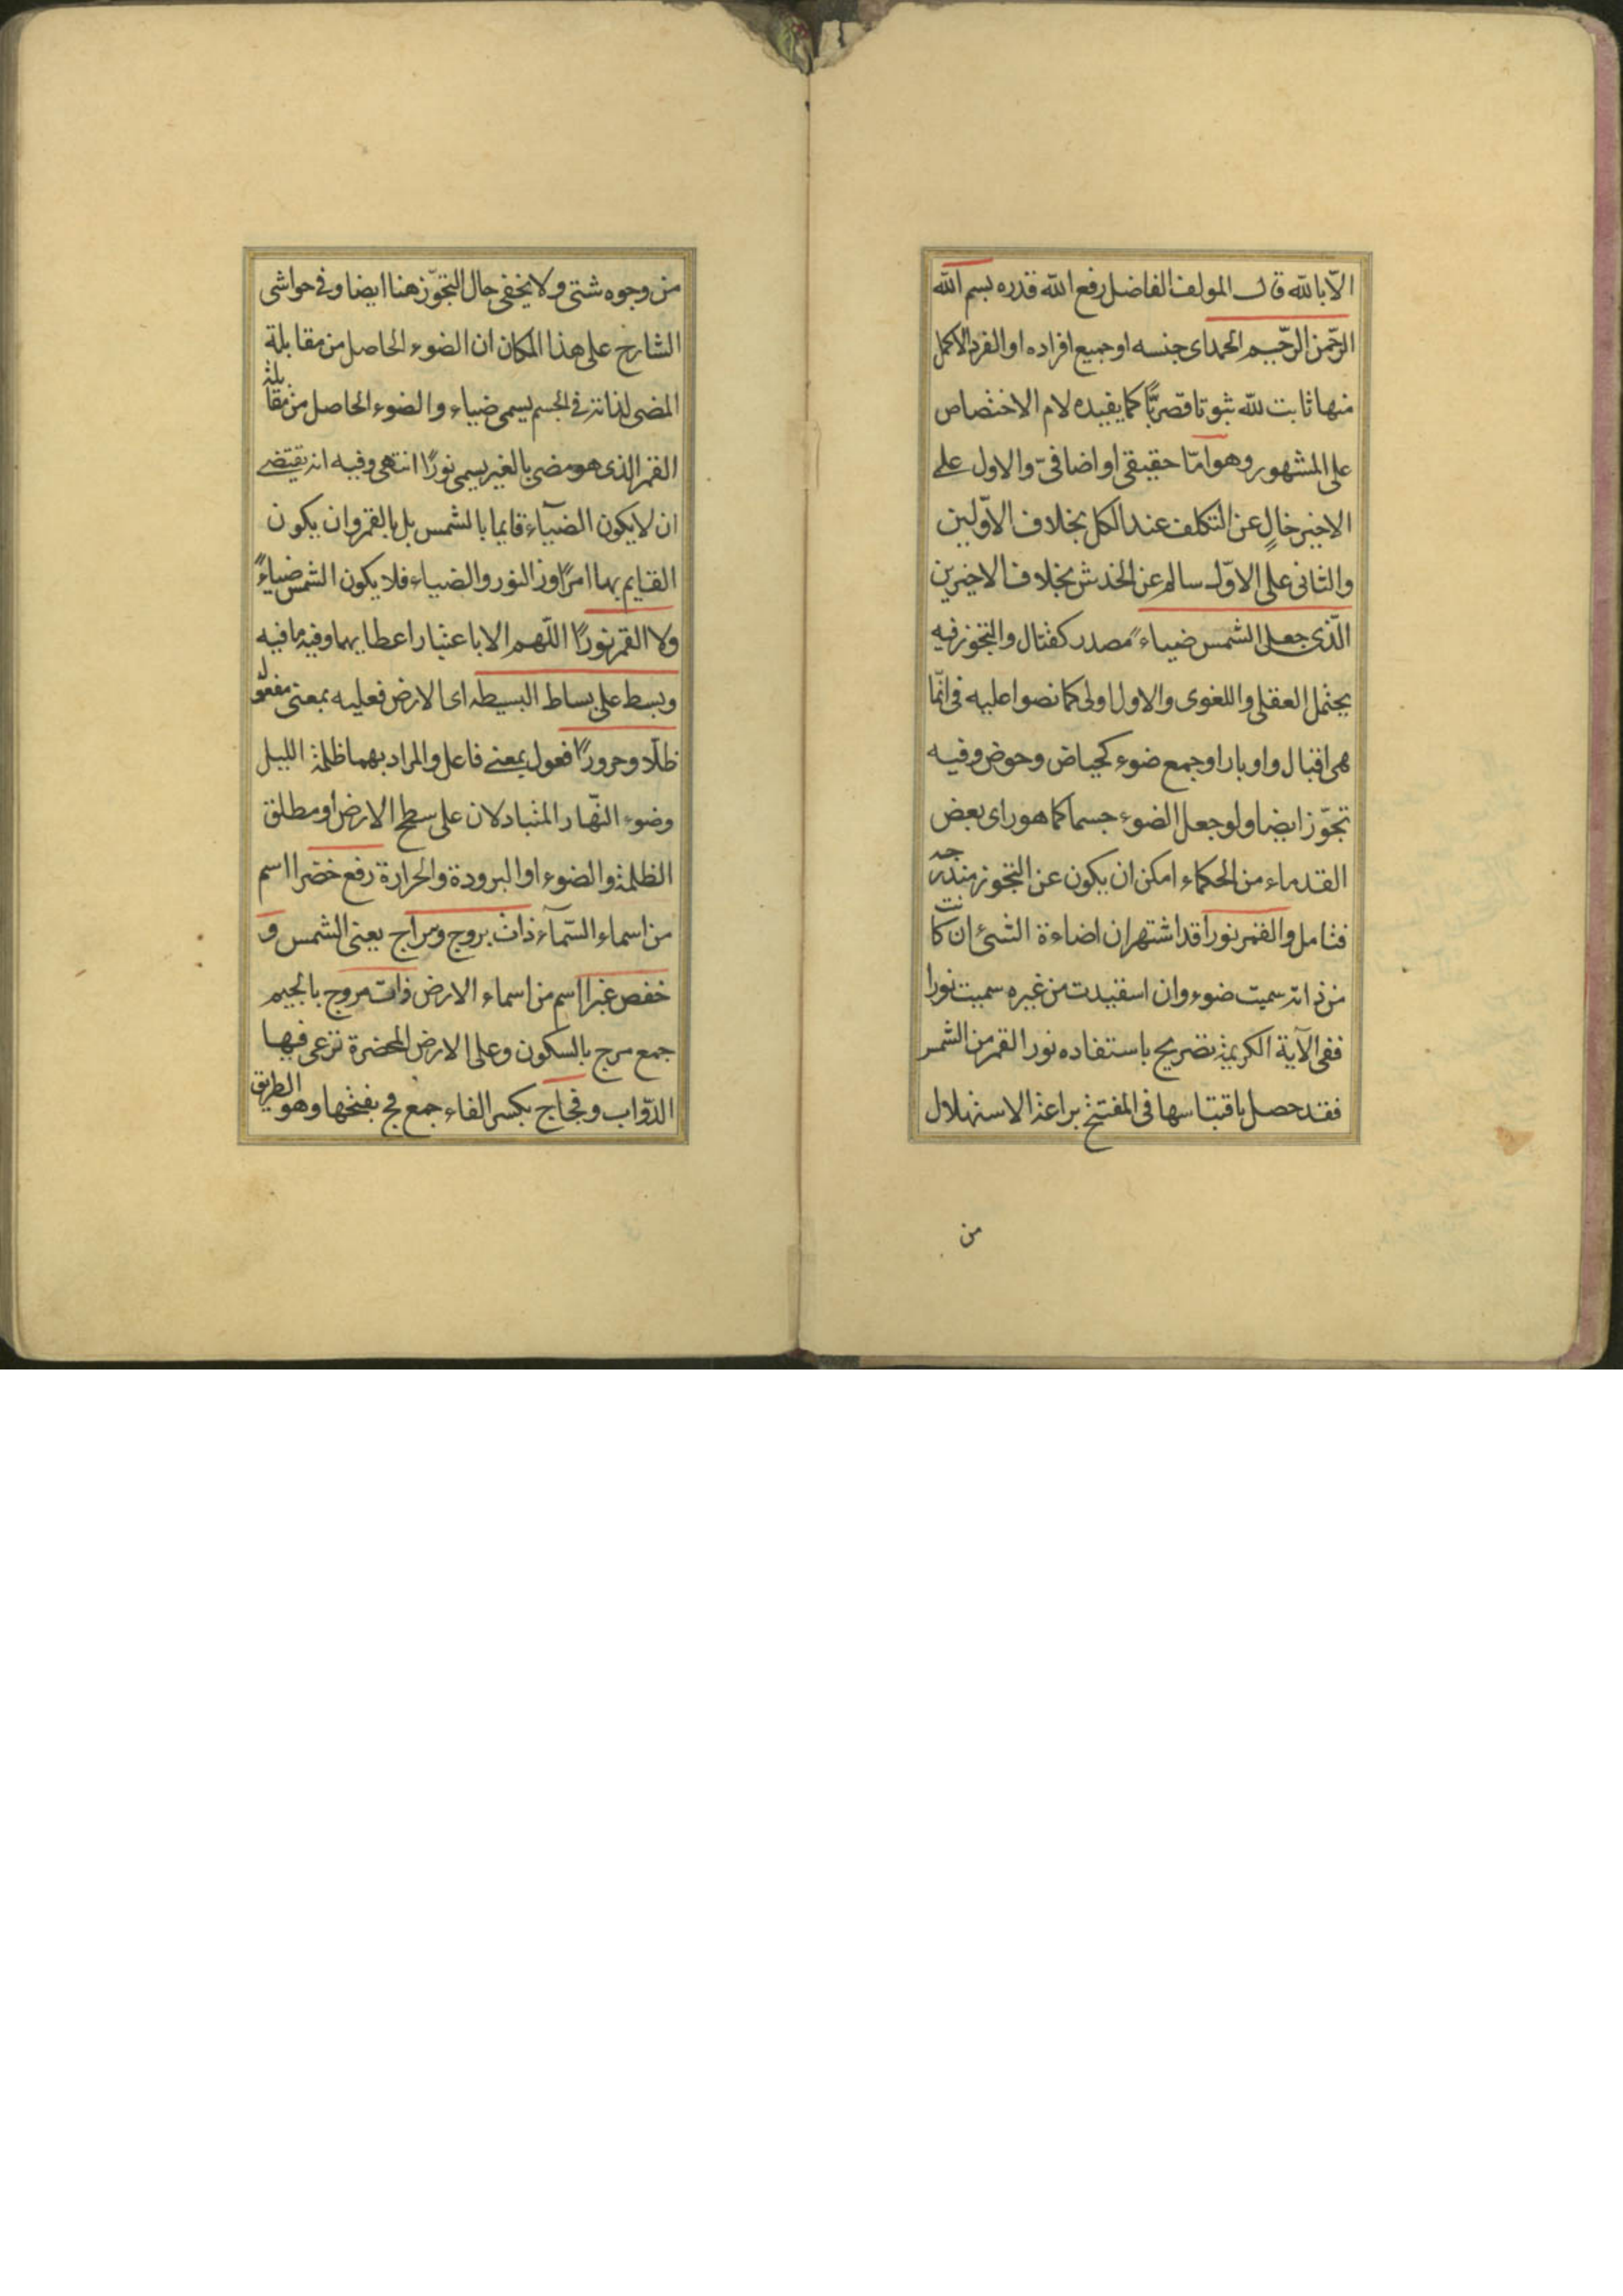 الّا بالله قال المولف الفاضل رفع الله قدره بسم الله
الرّحمن الرّحيم الحمد اى جنسه او جميع افراده او الفرد الاكمل
منها ثابت لله ثبوتا قصريًّا كما يفيده لام الاختصاص
على المشهور وهو امّا حقيقى او اضافىّ والاول على
الاخير خالٍ عن التكلف عند الكل بخلاف الاوّلين
والثانى على الاوّل سالم عن الخدش بخلاف الاخيرين
الّذى جعل الشمس ضياءً مصدر كقتال والتجوز فيه
يحتمل العقلى واللغوى والاول اولى كما نصوا عليه فى انّما
هى اقبال وادبار او جمع ضوء كحياض وحوض وفيه
تجوّز ايضا ولو جعل الضوء جسما كما هو راى بعض
القدماء من الحكماء امكن ان يكون عن التجوز مندرجه
فتامل والقمر نورا قد اشتهر ان اضاءة الشئ ان كانت
من ذاته سميت ضوء وان استفيدت من غيره سميت نورا
ففى الآية الكريمة تصريح باستفاده نور القمر من الشمس
فقد حصل باقتباسها فى المفتتح براعة الاستهلال
من
من وجوه شتى ولا يخفى حال التجوّز هنا ايضا وفى حواشى
الشارح على هذا المكان ان الضوء الحاصل من مقابلة
المضى لذاته فى الجسم يسمى ضياء والضوء الحاصل من مقابلة
القمر الذى هو مضى بالغير يسمى نورًا انتهى وفيه انه يقتضى
ان لا يكون الضياء قايما بالشمس بل بالقمر وان يكون
القايم بها امرًا وز النور والضياء فلا يكون الشمس ضياءً
ولا القمر نورًا اللّهم الا باعتبار اعطايهما وفيه ما فيه
وبسط على بساط البسيطه اى الارض فعليه بمعنى مفعول
ظلّا وحرورًا فعول بمعنى فاعل والمراد بهما ظلمة الليل
وضوء النّهار المتبادلان على سطح الارض او مطلق
الظلمة والضوء او البرودة والحرارة رفع خضرا اسم
من اسماء السّمآء ذات بروج وسراج يعنى الشمس و
خفض غبرا اسم من اسماء الارض ذات مروج بالجيم
جمع مرج بالسكون وعلى الارض المخضرة ترعى فيها
الدوّاب وفجاج بكسر الفاء جمع فج بفتحها وهو الطريق